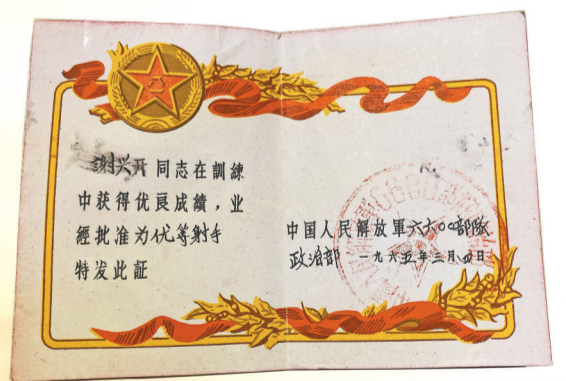 八一
謝兴开同志在訓練
中获得优良成績，业
經批准为优等射手
特发此証
中国人民解放軍六六〇〇部隊
政治部 一九六五年三月四日